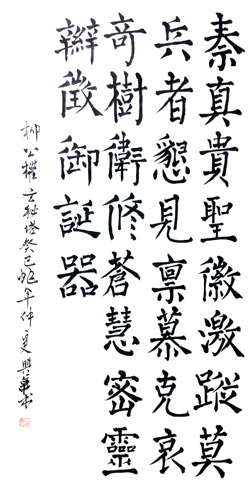 秦真貴聖徽激蹤莫
兵者懇見稟慕克哀
奇樹衛修蒼慧密靈
辯徵御誕器
柳公權玄秘塔癸巳蛇年仲夏興華書